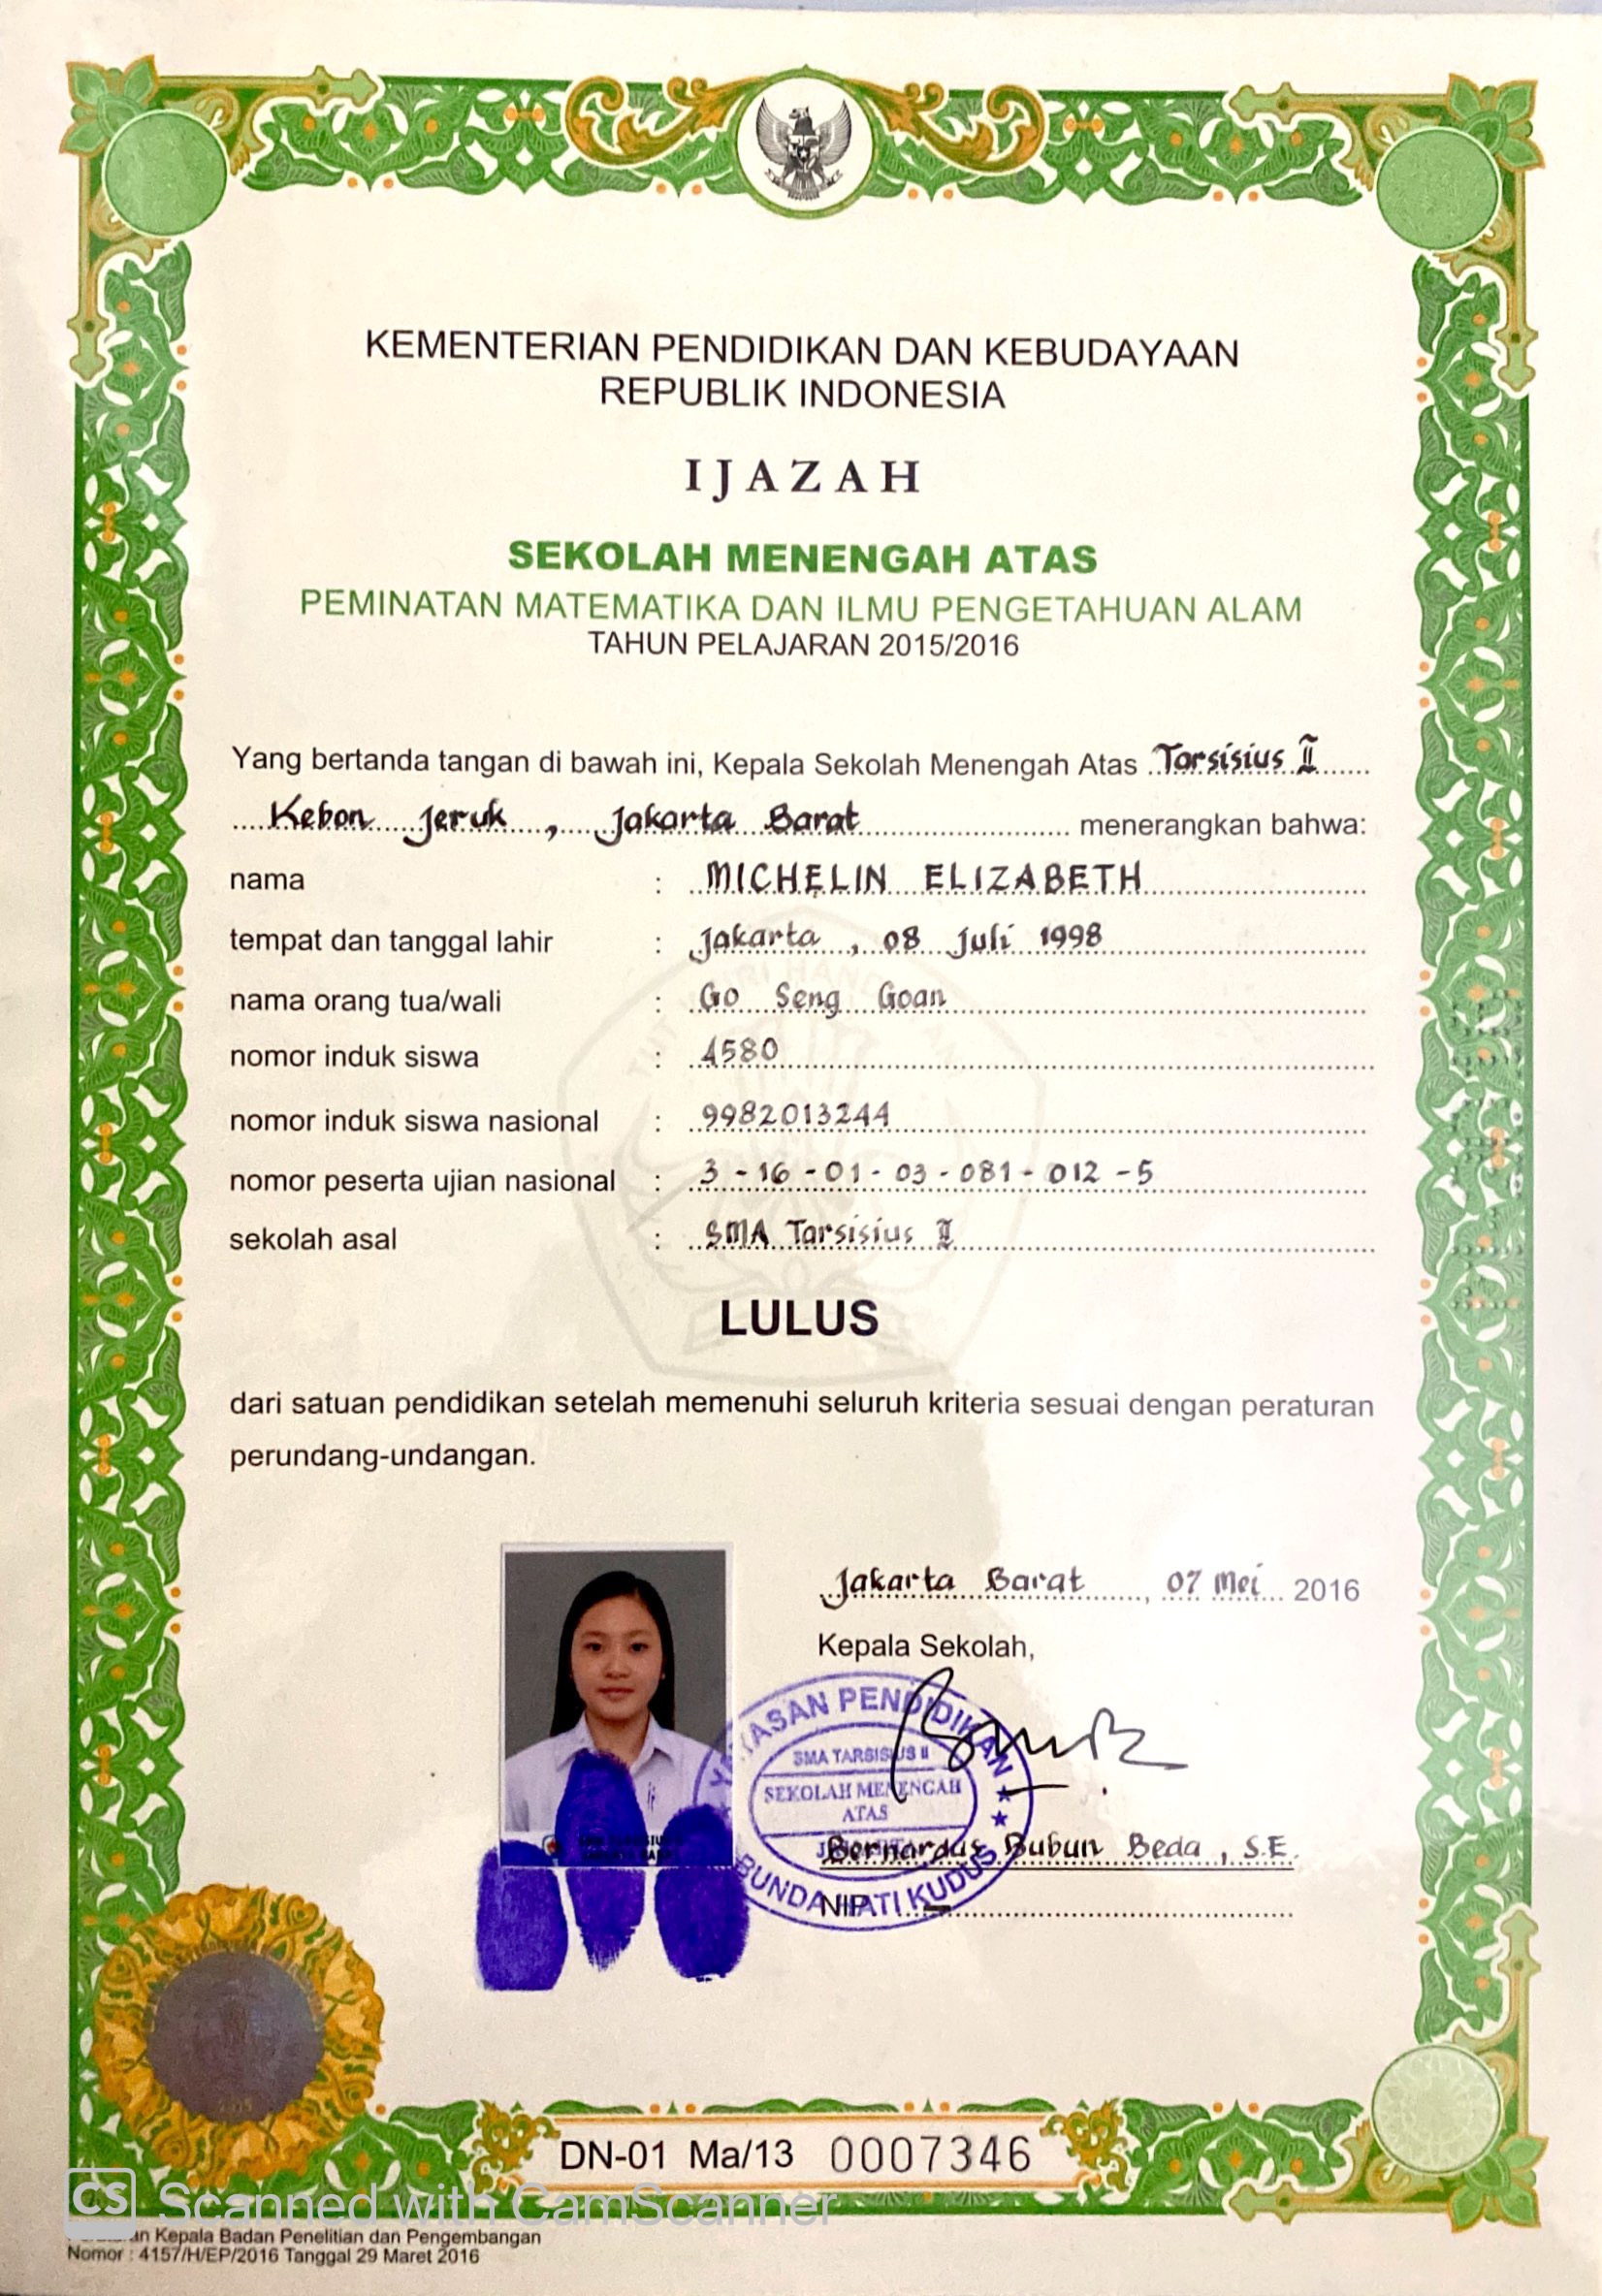 KEMENTERIAN PENDIDIKAN DAN KEBUDAYAAN
REPUBLIK INDONESIA
IJAZAH
SEKOLAH MENENGAH ATAS
PEMINATAN MATEMATIKA DAN ILMU PENGETAHUAN ALAM
TAHUN PELAJARAN 2015/2016
Yang bertanda tangan di bawah ini, Kepala Sekolah Menengah Atas Tarsisius II
Kebon Jeruk, Jakarta Barat menerangkan bahwa:
nama : MICHELIN ELIZABETH
tempat dan tanggal lahir : Jakarta, 08 Juli 1998
nama orang tua/wali : Go Seng Goan
nomor induk siswa : 4580
nomor induk siswa nasional : 9982013244
nomor peserta ujian nasional : 3 - 16 - 01 - 03 - 081 - 012 - 5
sekolah asal : SMA Tarsisius II
LULUS
dari satuan pendidikan setelah memenuhi seluruh kriteria sesuai dengan peraturan
perundang-undangan.
Jakarta Barat, 07 Mei 2016
Kepala Sekolah,
YAYASAN PENDIDIKAN
SMA TARSISIUS II
SEKOLAH MENENGAH
ATAS
BUNDA HATI KUDUS
Bernardus Bubun Beda, S.E.
NIP. -
DN-01 Ma/13 0007346
CS Scanned with CamScanner
Kepala Badan Penelitian dan Pengembangan
Nomor : 4157/H/EP/2016 Tanggal 29 Maret 2016